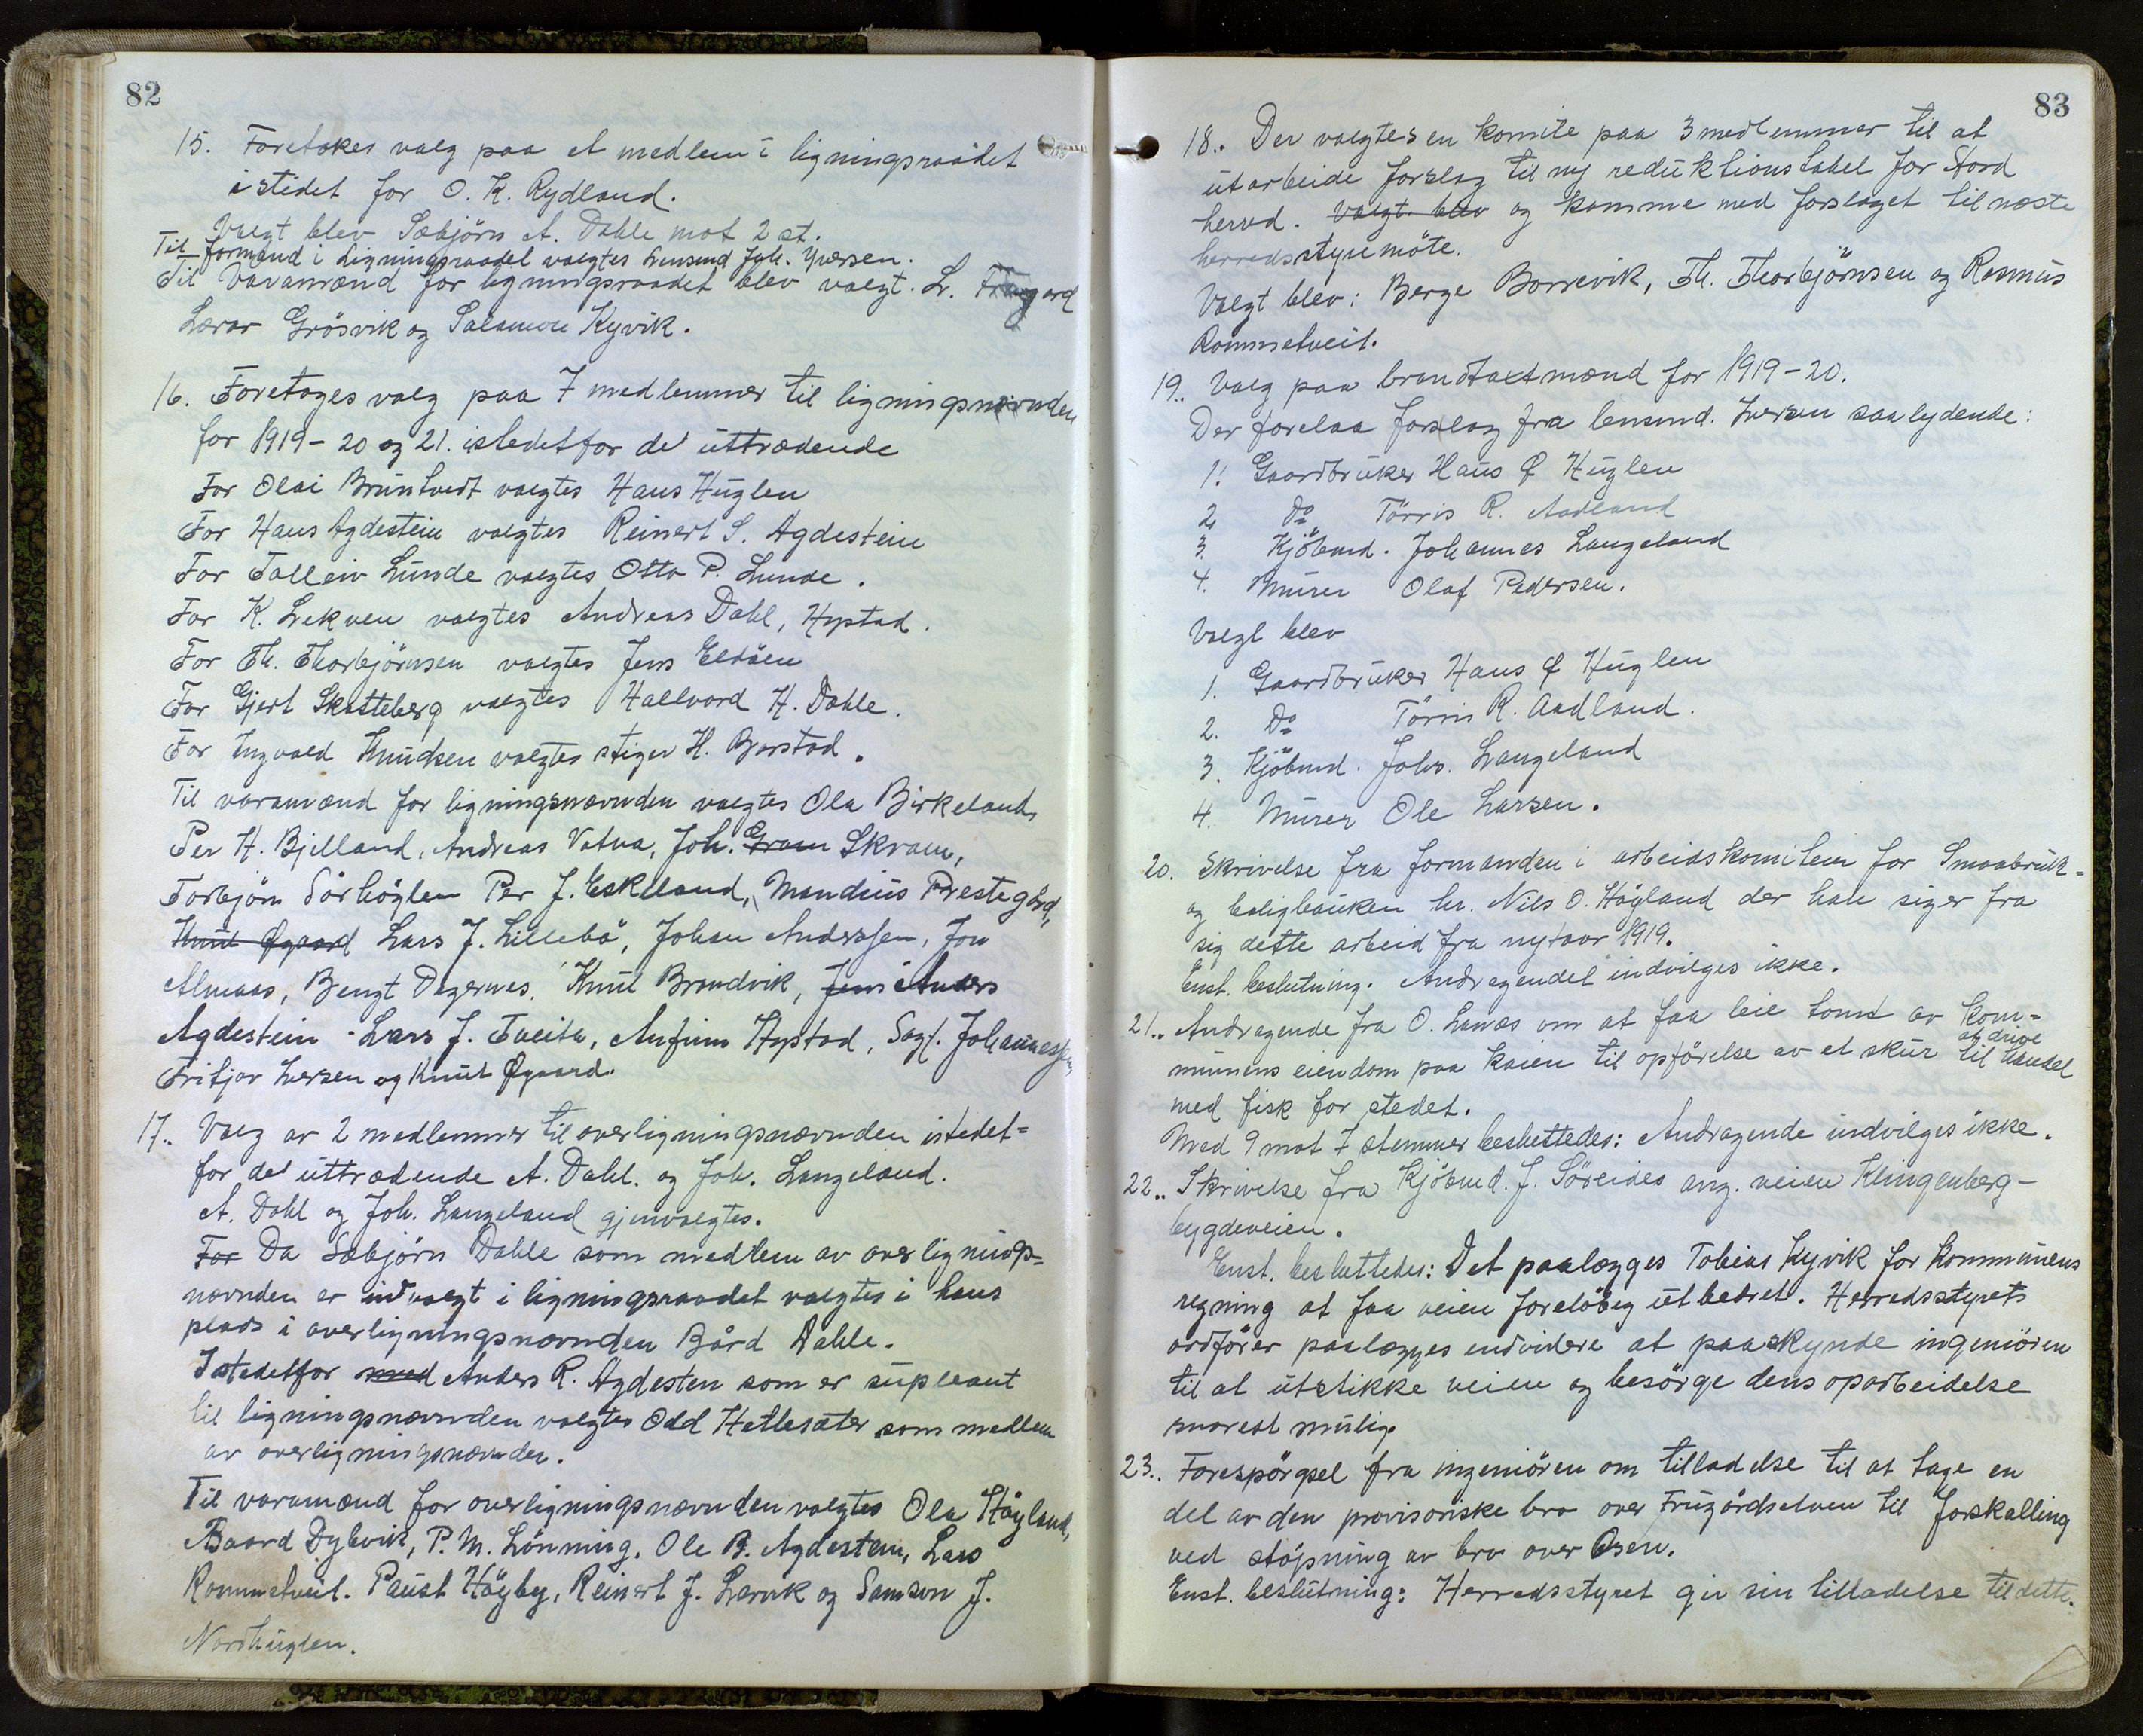 82
15. Foretokes valg paa et medlem i ligningsraadet
istedet for O. K. Rydland.
Valgt blev Sæbjörn A. Dahle mot 2 st.
Til formand i Ligningsraadet valgtes Lensmd Joh. Yversen.
Til Varamænd for ligningsraadet blev valgt. L.
Lærar Grösvik og Salamon Kyvik.
16. Foretages valg paa 7 medlemmer til ligningsnævnden
for 1919-20 og 21. istedetfor de uttrædende
For Olai Bruntvedt valgtes Hans Huglen
For Hans Agdestein valgtes Reinert S. Agdestein
For Falleiv Lunde valgtes Otto P. Lunde.
For K. Lekven valgtes Andreas Dahl, Hystad.
For Th. Thorbjörnsen valgtes Jens Eldöen
For Gjert Skatteberg valgtes Hallvard H. Dahle.
For Ingvald Knudsen valgtes stiger H. Barstad.
Til varamænd for ligningsnævnden valgtes Ola Birkeland,
Per H. Bjelland, Andreas Vatna, Joh. Gram Skram,
Torbjörn Sörhöglen Per J. Eskeland, Mandius Prestegård,
Knut Øgaard Lars J. Lillebö, Johan Anderssen, Jon
Almaas, Bengt Digernes, Knut Brandvik, Jens Anders
Agdestein - Lars J. Tveita, Anfinn Hystad, Sagf. Johannessen,
Tritjov Iversen og Knut Øgaard.
17.. Valg av 2 medlemmer til overligningsnævnden istedet=
for de uttrædende A. Dahl. og Joh. Langeland.
A. Dahl og Joh. Langeland gjenvalgtes.
For Da Sæbjörn Dahle som medlem av overlignings=
nævnden er indvalgt i ligningsraadet valgtes i hans
plads i overligningsnævnden Bård Dahle.
Istedetfor med Anders R. Agdesten som er supleant
til ligningsnævnden valgtes Odd Hatlesæter som medlem
av overligningsnævnden.
Til varamænd for overligningsnævnden valgtes Ola Höyland,
Baard Dybvik, P. M. Lönning. Ole B. Agdestein, Lars
Rommetveit. Paust Höyby, Reinert J. Larvik og Samson J.
Nordhuglen.
83
18.. Der valgtes en komite paa 3 medlemmer til at
utarbeide forslag til ny reduktionstabel for Stord
herred. Valgt blev og komme med forslaget til næste
herredsstyremöte.
Valgt blev: Berge Borrevik, Th. Thorbjörnsen og Rasmus
Rommetveit.
19.. Valg paa brandtaxtmænd for 1919-20.
Der forelaa forslag fra lensmd. Iversen saalydende:
1. Gaardbruker Hans Ø Huglen
2. Do Törris R. Aadland
3. Kjöbmd. Johannes Langeland
4. Murer Olaf Pedersen.
Valgt blev
1. Gaardbruker Hans Ø Huglen
2. Do Törris R. Aadland.
3. Kjöbmd. Johs. Langeland
4. Murer Ole Larsen.
20. Skrivelse fra formanden i arbeidskomiteen for Smaabruk=
og boligbanken hr. Nils O. Höyland der han siger fra
sig dette arbeid fra nytaar 1919.
Enst. beslutning. Andragendet indvilges ikke.
21.. Andragende fra O. Lanæs om at faa leie tomt av kom=
munens eiendom paa kaien til opförelse av et skur til at drive handel
med fisk for stedet.
Med 9 mot 7 stemmer besluttedes: Andragende indvilges ikke.
22.. Skrivelse fra Kjöbmd. J. Söreides ang. veien Klingenberg-
bygdeveien.
Enst. besluttedes: Det paalægges Tobias Kyvik for kommunens
regning at faa veien foreløbig utbedret. Herredsstyrets
ordförer paalægges endvidere at paaskynde ingeniören
til at utstikke veien og besörge dens oparbeidelse
snarest mulig.
23.. Forespörgsel fra ingeniören om tilladelse til at tage en
del av den provisoriske bro over Frugårdselven til forskalling
ved støpning av bro over Osen.
Enst. beslutning: Herredsstyret gir sin tilladelse til dette.